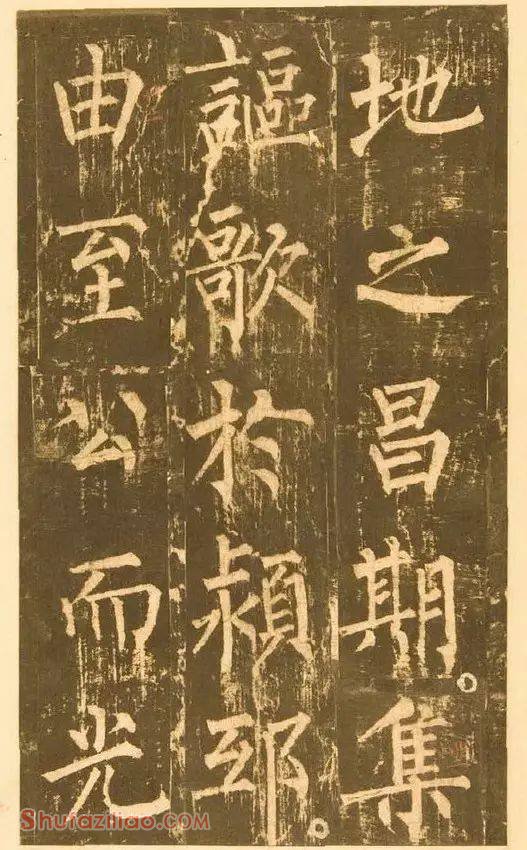 地之昌期集
謳歌於潁邸
由至公而光
Shufaziliao.com